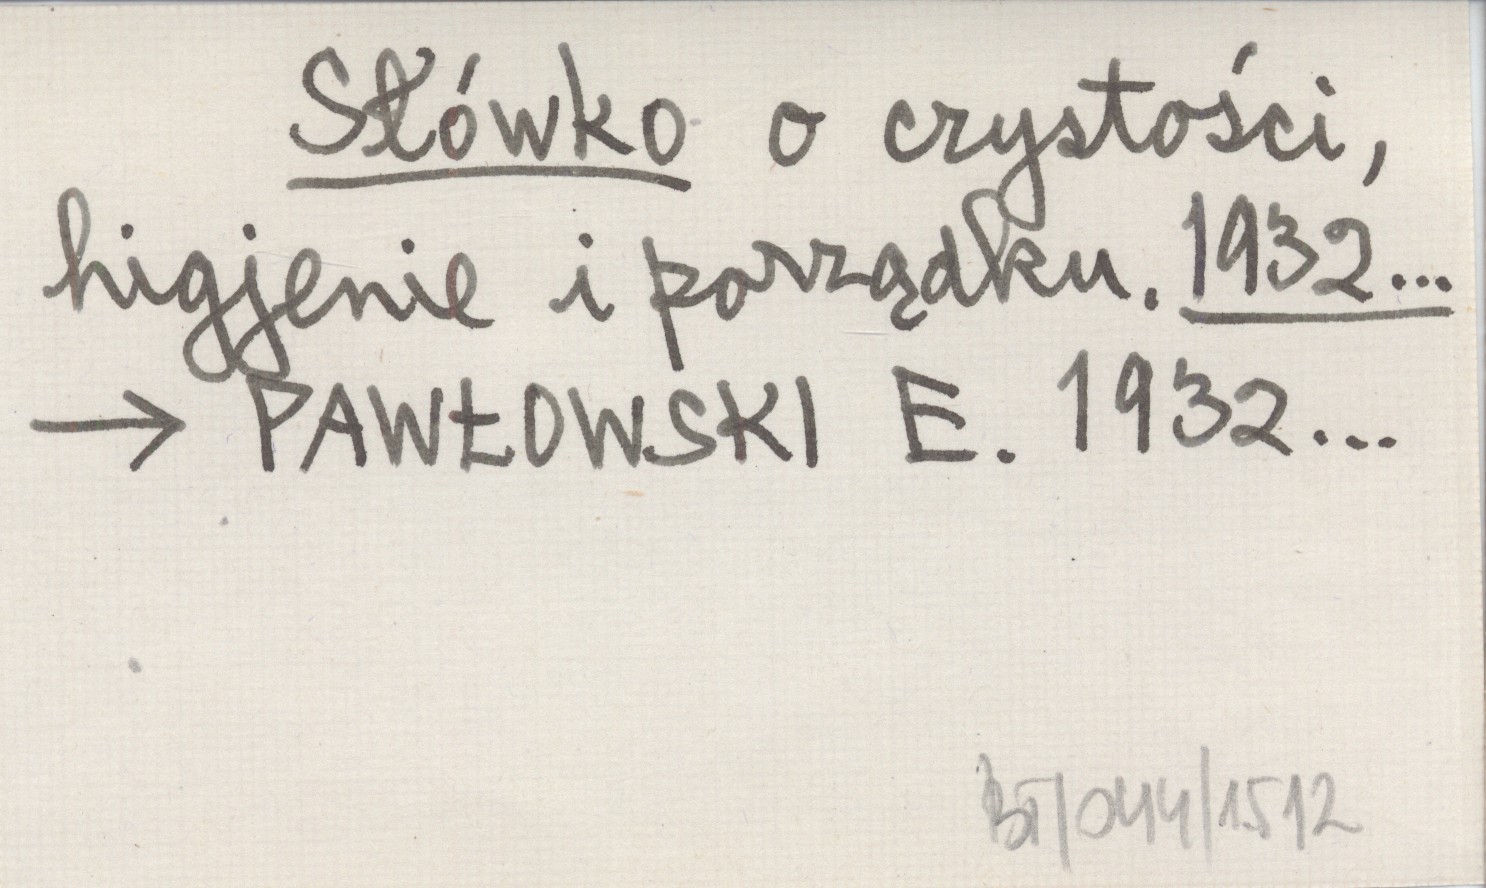 Słówko o czystości,
higjenie i porządku. 1932...
→ PAWŁOWSKI E. 1932...
BT/044/1512